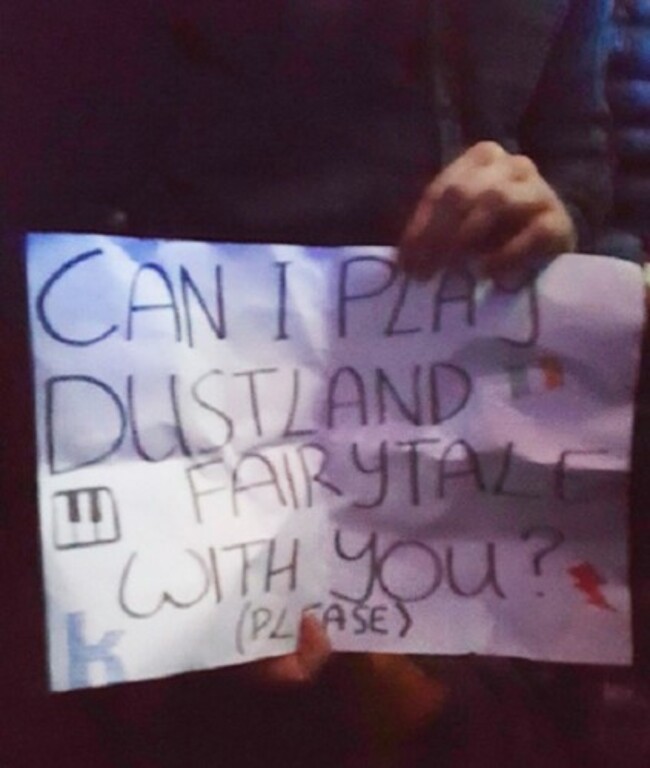 CAN I PLAY
DUSTLAND
FAIRYTALE
WITH YOU?
(PLEASE)
K